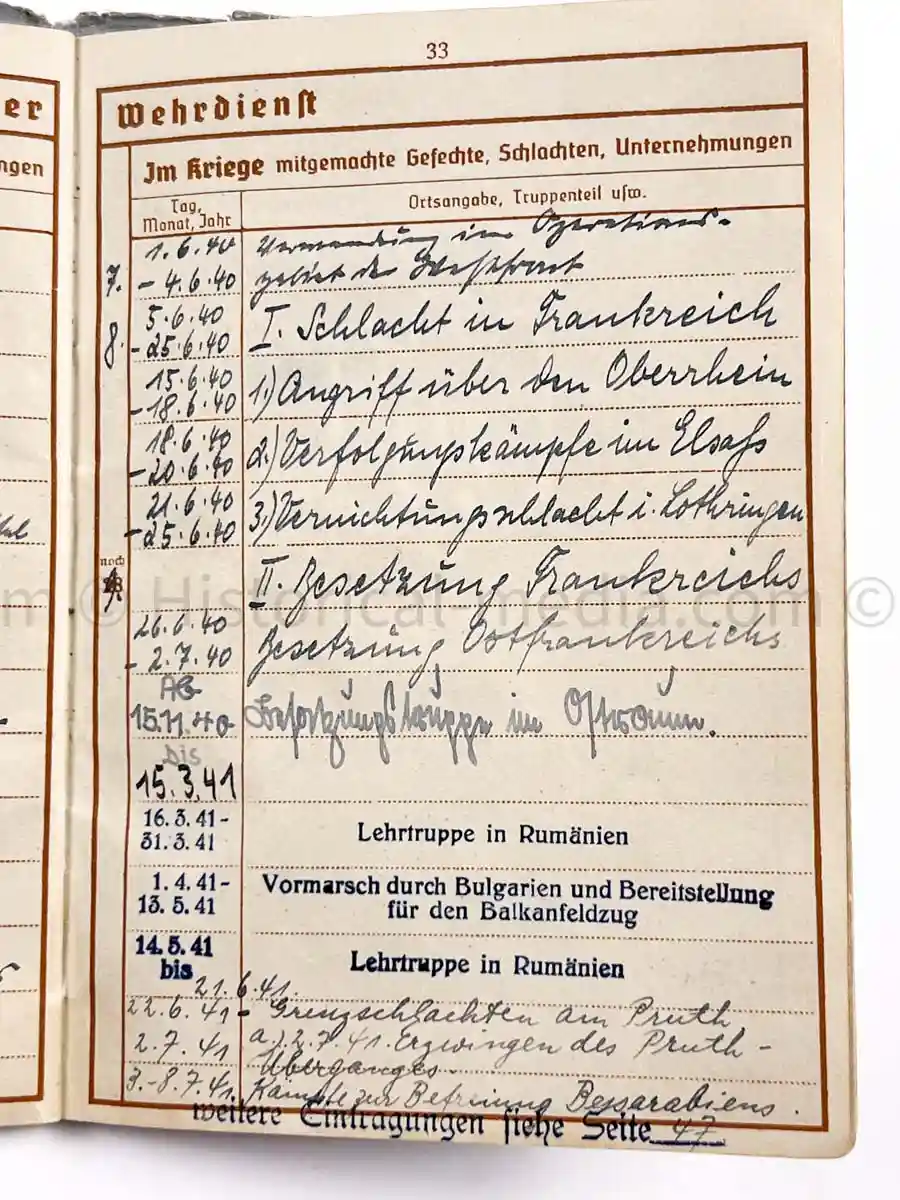 33
er
Wehrdienst
ngen
Im Kriege mitgemachte Gefechte, Schlachten, Unternehmungen
Tag, Monat, Jahr
Ortsangabe, Truppenteil usw.
7. 1.6.40 Verwendung im Operations-
- 4.6.40 gebiet der Westfront
8. 5.6.40 I. Schlacht in Frankreich
- 25.6.40
15.6.40 1.) Angriff über den Oberrhein
- 18.6.40
18.6.40 2.) Verfolgungskämpfe im Elsaß
- 20.6.40
21.6.40 3.) Vernichtungsschlacht i. Lothringen
- 25.6.40
noch II. Besetzung Frankreichs
26.6.40 Besetzung Ostfrankreichs
- 2.7.40
Ab
15.11.40 Besatzungstruppe im Ostraum.
bis
15.3.41
16.3.41- Lehrtruppe in Rumänien
31.3.41
1.4.41- Vormarsch durch Bulgarien und Bereitstellung
13.5.41 für den Balkanfeldzug
14.5.41 Lehrtruppe in Rumänien
bis
21.6.41.
22.6.41 - Grenzschlachten am Pruth
2.7.41 a.) 2.7.41. Erzwingen des Pruth-
Überganges.
3.-8.7.41. Kämpfe zur Befreiung Bessarabiens.
weitere Eintragungen siehe Seite 47
m © Historical-media.com ©